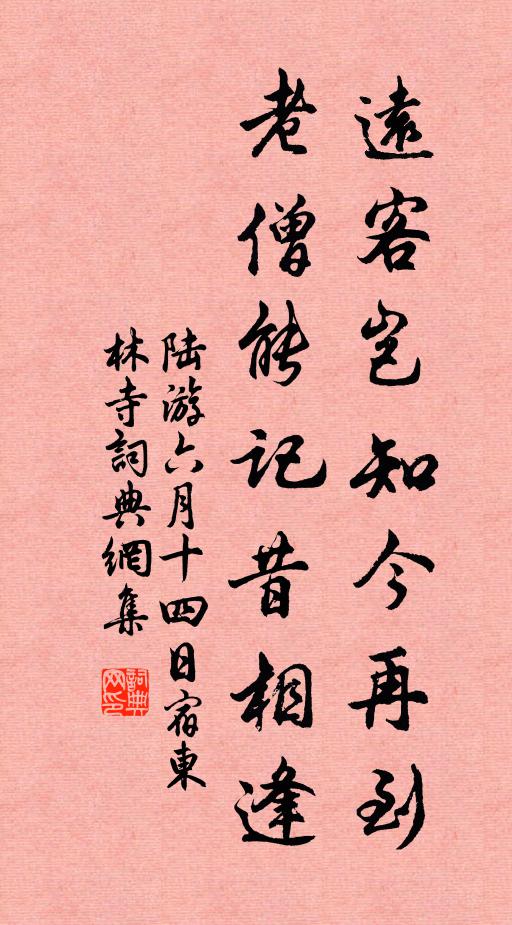 遠客豈知今再到
老僧能記昔相逢
陸游六月十四日宿東
林寺詞典網集
詞典
网印